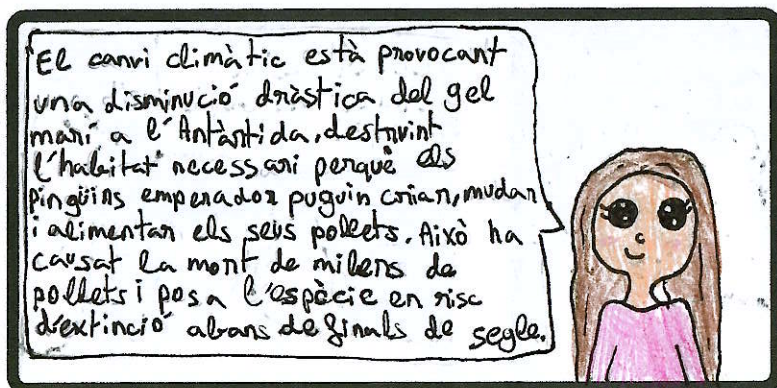 El canvi climàtic està provocant
una disminució dràstica del gel
marí a l'Antàrtida, destruint
l'habitat necessari perquè els
pingüins emperador puguin criar, mudar
i alimentar els seus pollets. Això ha
causat la mort de milers de
pollets i posa l'espècie en risc
d'extinció abans de finals de segle.